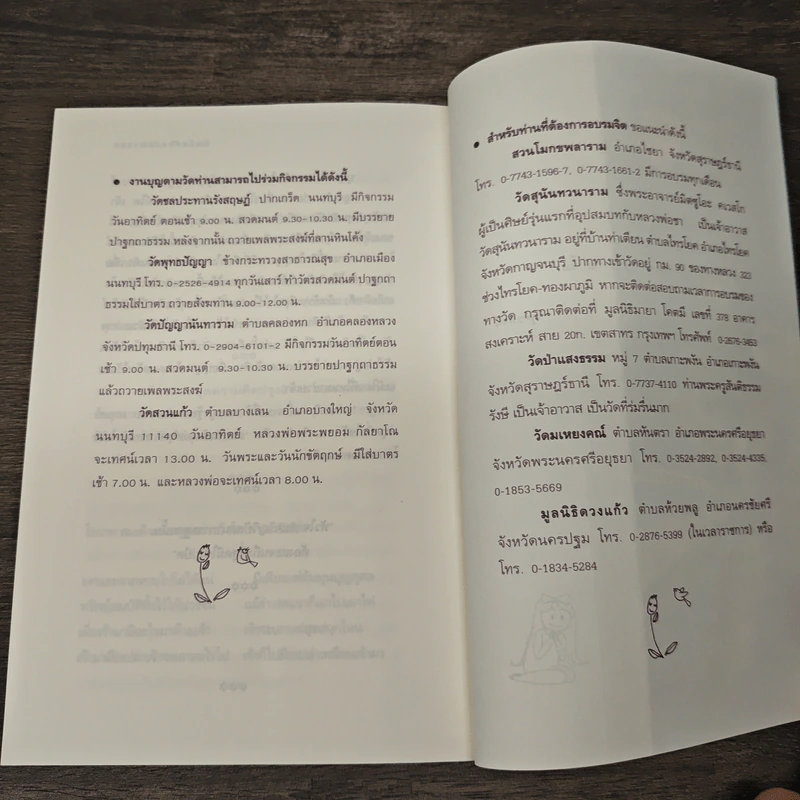 ● งานบุญตามวัดท่านสามารถไปร่วมกิจกรรมได้ดังนี้
วัดชลประทานรังสฤษฎ์ ปากเกร็ด นนทบุรี มีกิจกรรม
วันอาทิตย์ ตอนเช้า 9.00 น. สวดมนต์ 9.30-10.30 น. มีบรรยาย
ปาฐกถาธรรม หลังจากนั้น ถวายเพลพระสงฆ์ที่ลานหินโค้ง
วัดพุทธปัญญา ข้างกระทรวงสาธารณสุข อำเภอเมือง
นนทบุรี โทร. 0-2526-4914 ทุกวันเสาร์ ทำวัตรสวดมนต์ ปาฐกถา
ธรรมใส่บาตร ถวายสังฆทาน 9.00-12.00 น.
วัดปัญญานันทาราม ตำบลคลองหก อำเภอคลองหลวง
จังหวัดปทุมธานี โทร. 0-2904-6101-2 มีกิจกรรมวันอาทิตย์ตอน
เช้า 9.00 น. สวดมนต์ 9.30-10.30 น. บรรยายปาฐกถาธรรม
แล้วถวายเพลพระสงฆ์
วัดสวนแก้ว ตำบลบางเลน อำเภอบางใหญ่ จังหวัด
นนทบุรี 11140 วันอาทิตย์ หลวงพ่อพระพยอม กัลยาโณ
จะเทศน์เวลา 13.00 น. วันพระและวันนักขัตฤกษ์ มีใส่บาตร
เช้า 7.00 น. และหลวงพ่อจะเทศน์เวลา 8.00 น.
● สำหรับท่านที่ต้องการอบรมจิต ขอแนะนำดังนี้
สวนโมกขพลาราม อำเภอไชยา จังหวัดสุราษฎร์ธานี
โทร. 0-7743-1596-7, 0-7743-1661-2 มีการอบรมทุกเดือน
วัดสุนันทวนาราม ซึ่งพระอาจารย์มิตซูโอะ คเวสโก
ผู้เป็นศิษย์รุ่นแรกที่อุปสมบทกับหลวงพ่อชา เป็นเจ้าอาวาส
วัดสุนันทวนาราม อยู่ที่บ้านท่าเตียน ตำบลไทรโยค อำเภอไทรโยค
จังหวัดกาญจนบุรี ปากทางเข้าวัดอยู่ กม. 90 ของทางหลวง 323
ช่วงไทรโยค-ทองผาภูมิ หากจะติดต่อสอบถามเวลาการอบรมของ
ทางวัด กรุณาติดต่อที่ มูลนิธิมายา โคตมี เลขที่ 378 อาคาร
สงเคราะห์ สาย 20ก. เขตสาทร กรุงเทพฯ โทรศัพท์ 0-2676-3453
วัดป่าแสงธรรม หมู่ 7 ตำบลเกาะพงัน อำเภอเกาะพงัน
จังหวัดสุราษฎร์ธานี โทร. 0-7737-4110 ท่านพระครูสันติธรรม
รังษี เป็นเจ้าอาวาส เป็นวัดที่ร่มรื่นมาก
วัดมเหยงคณ์ ตำบลหันตรา อำเภอพระนครศรีอยุธยา
จังหวัดพระนครศรีอยุธยา โทร. 0-3524-2892, 0-3524-4335,
0-1853-5669
มูลนิธิดวงแก้ว ตำบลห้วยพลู อำเภอนครชัยศรี
จังหวัดนครปฐม โทร. 0-2876-5399 (ในเวลาราชการ) หรือ
โทร. 0-1834-5284